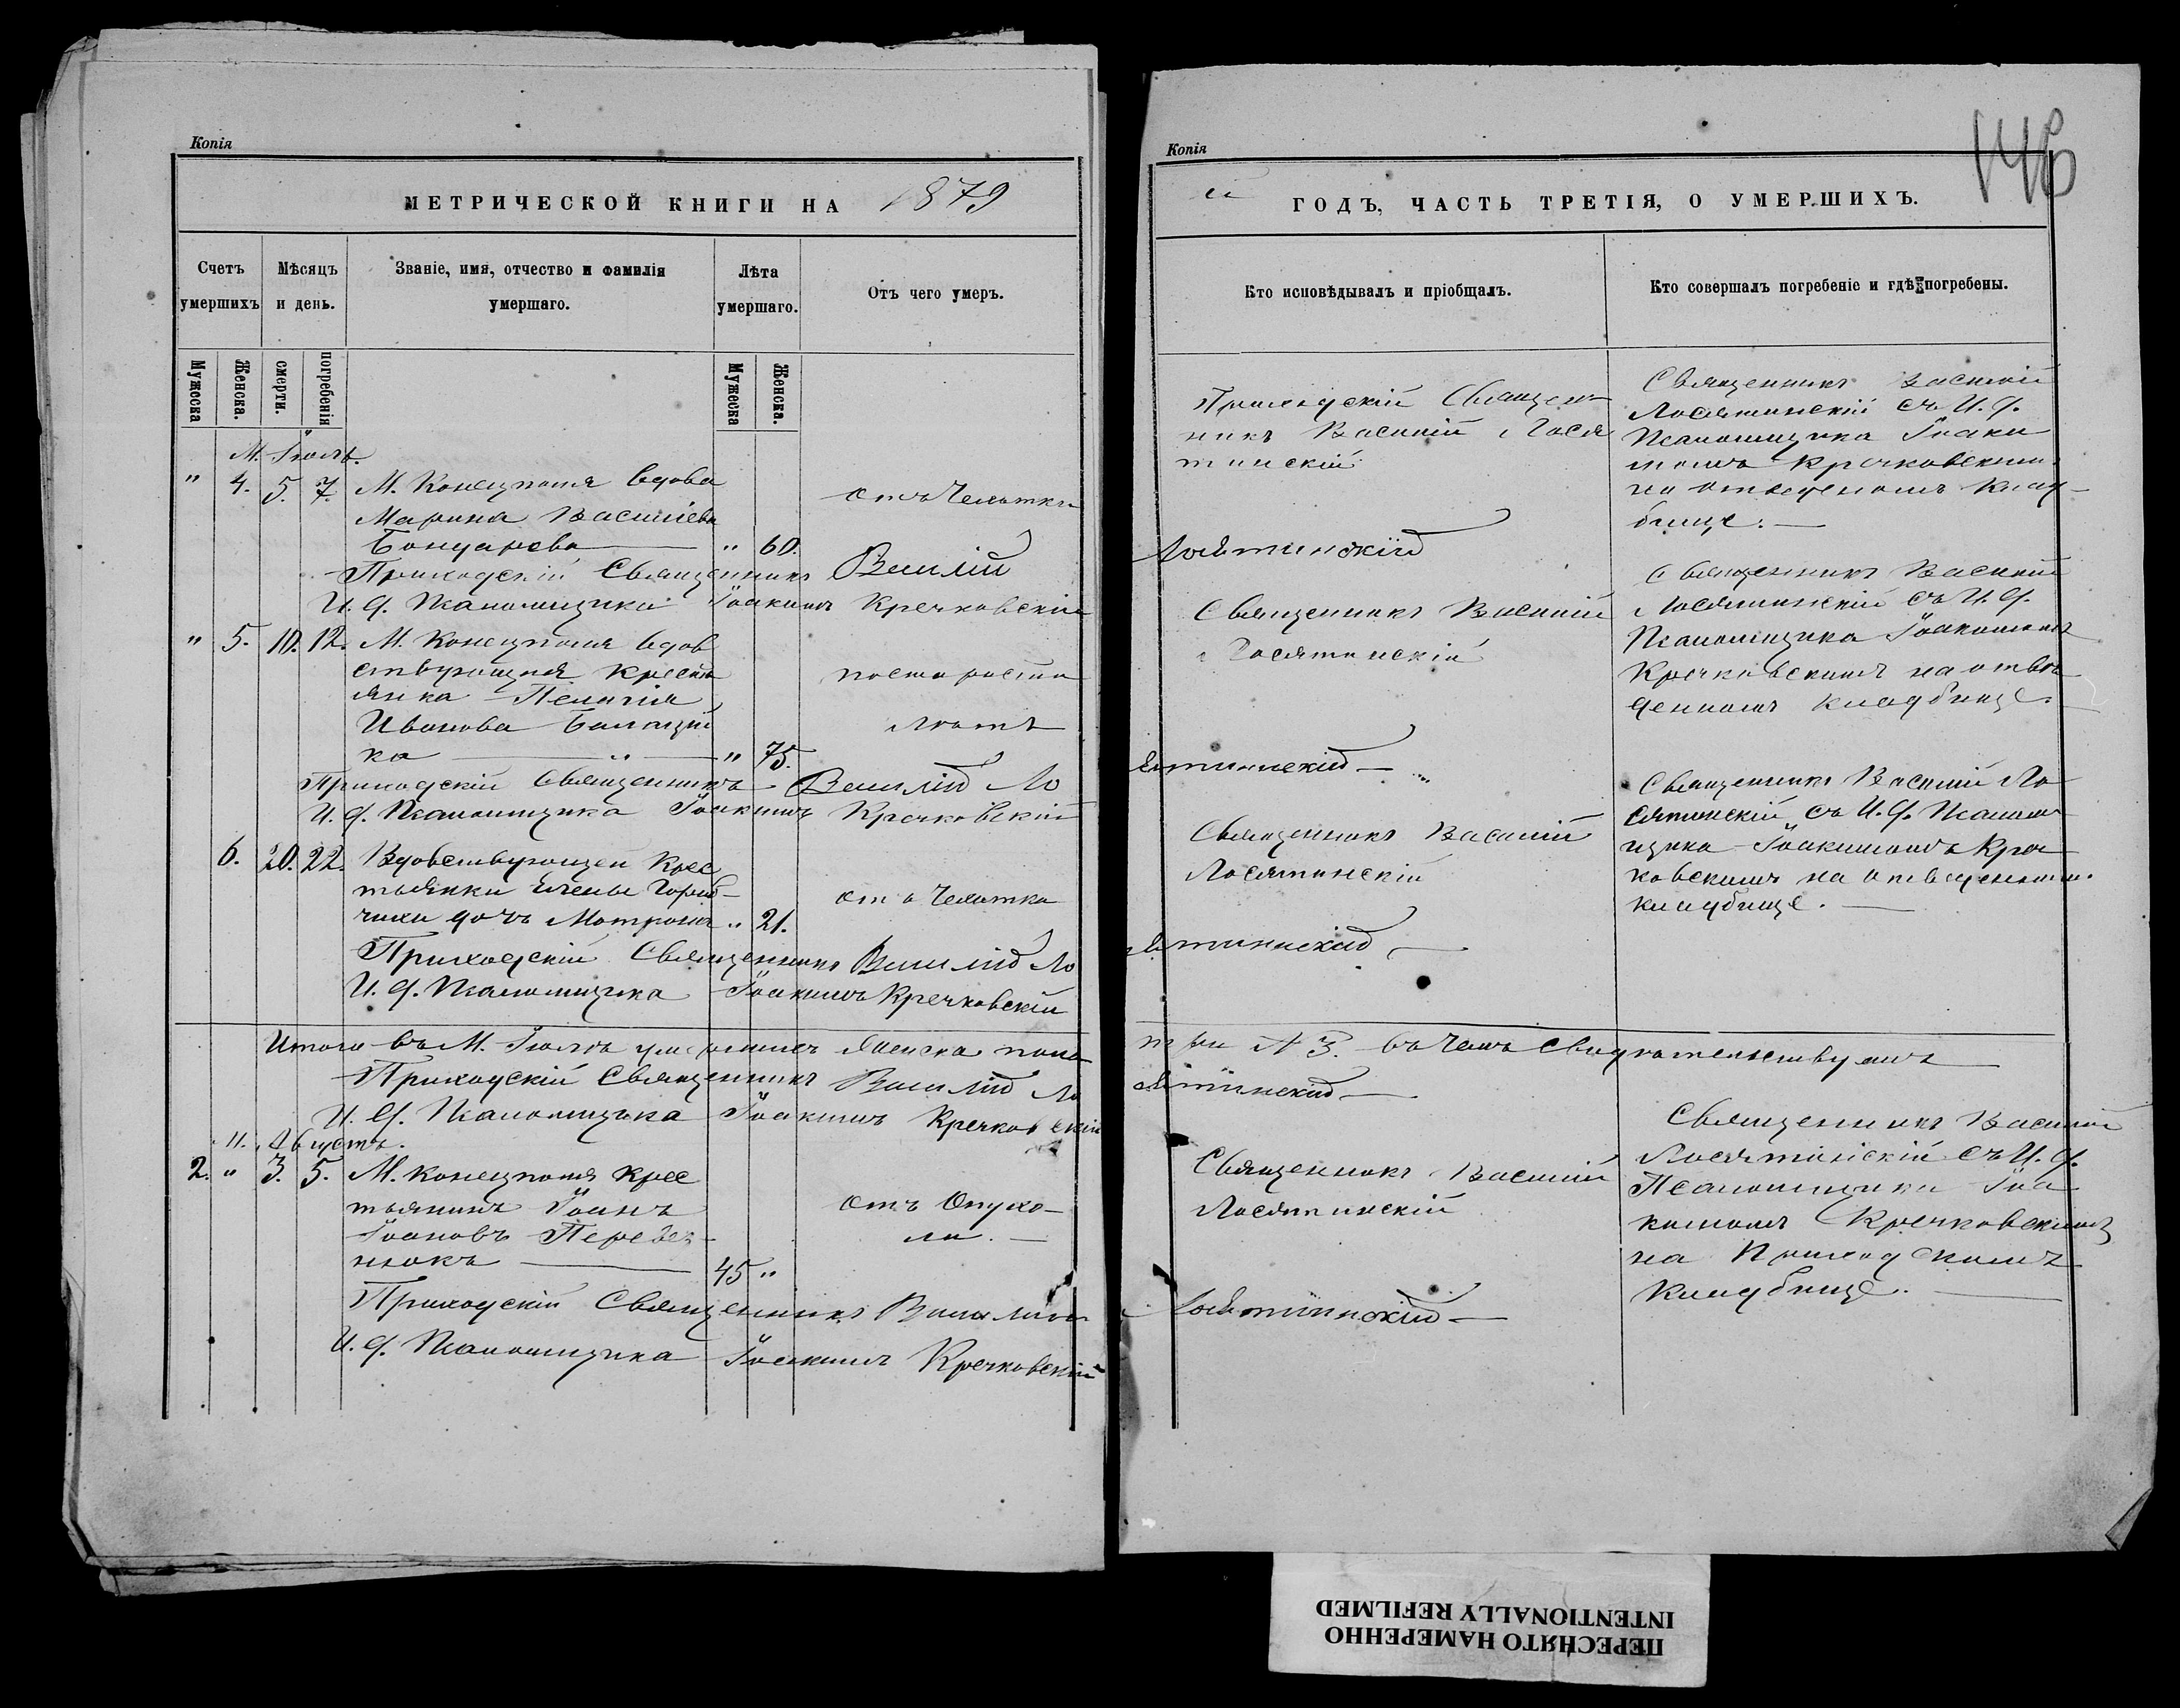 Копія
МЕТРИЧЕСКОЙ КНИГИ НА 1879
Счетъ умершихъ
Мѣсяцъ и день.
Званіе, имя, отчество и фамилія умершаго.
Лѣта умершаго.
Отъ чего умеръ.
Мужеска
Женска.
смерти.
погребенія
Мужеска
Женска.
М. Іюль.
" 4. 5. 7. М. Конецполя вдова
Марина Василіева
Бондарева — " 60.
отъ Чехотки
Приходскій Священникъ Василій
И. д. Псаломщика Іоакимъ Кречковскій
" 5. 10. 12. М. Конецполя вдов
ствующая крестья
янка Пелагія
Иванова
ка — " — " 75.
по старости
лѣтъ
Приходскій Священникъ Василій Ло
И. д. Псаломщика Іоакимъ Кречковскій
6. 20. 22. Вдовствующей Крес
тьянки Елены
чихи дочь Матрона " 21.
отъ Чехотки
Приходскій Священникъ Василій Ло
И. д. Псаломщика Іоакимъ Кречковскій
Итого въ М. Іюлѣ умершихъ женска пола
Приходскій Священникъ Василій Ло
И. д. Псаломщика Іоакимъ Кречковскій
Августъ.
2. " 3. 5. М. Конецполя крес
тьянинъ Іоанъ
Іоановъ Перебей
нюкъ — 45 "
отъ Опухо-
ли. —
Приходскій Священникъ Василій
И. д. Псаломщика Іоакимъ Кречковскій
Копія
146
й ГОДЪ, ЧАСТЬ ТРЕТІЯ, О УМЕРШИХЪ.
Кто исповѣдывалъ и пріобщалъ.
Кто совершалъ погребеніе и гдѣ погребены.
Приходскій Священ-
никъ Василій Лося
тинскій
Священникъ Василій
Лосятинскій съ И. д.
Псаломщика Іоаки
момъ Кречковскимъ
на отведеномъ клад-
бищѣ. —
Лосятинскій
Священникъ Василій
Лосятинскій
Священникъ Василій
Лосятинскій съ И. д.
Псаломщика Іоакимомъ
Кречковскимъ на отве
денномъ кладбищѣ.
сятинскій —
Священникъ Василій
Лосятинскій
Священникъ Василій Ло
сятинскій съ И. д. Псалом
щика Іоакимомъ Креч
ковскимъ на отведеномъ
кладбищѣ. —
сятинскій —
три N 3. въ чемъ свидѣтельствуемъ
сятинскій —
Священникъ Василій
Лосятинскій
Священникъ Василій
Лосятинскій съ И. д.
Псаломщика Іоа
кимомъ Кречковскимъ
на Приходскомъ
Кладбищѣ. —
Лосятинскій —
ПЕРЕСНЯТО НАМЕРЕННО
INTENTIONALLY REFILMED